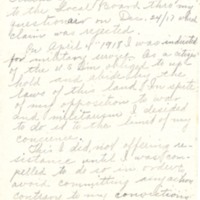 to the Local Board thru my
questionaire on Dec. 24/17 which
claim was rejected.
In April of 1918 I was inducted
for military service. As a citizen
of the U.S. am obliged to up-
hold and abide by the
laws of this land. In spite
of my opposition to war
and militarism I decided
to do so to the limit of my
conscience.
This I did not offering re-
sistance until I was com-
pelled to do so in order
avoid committing any action
contrary to my convictions